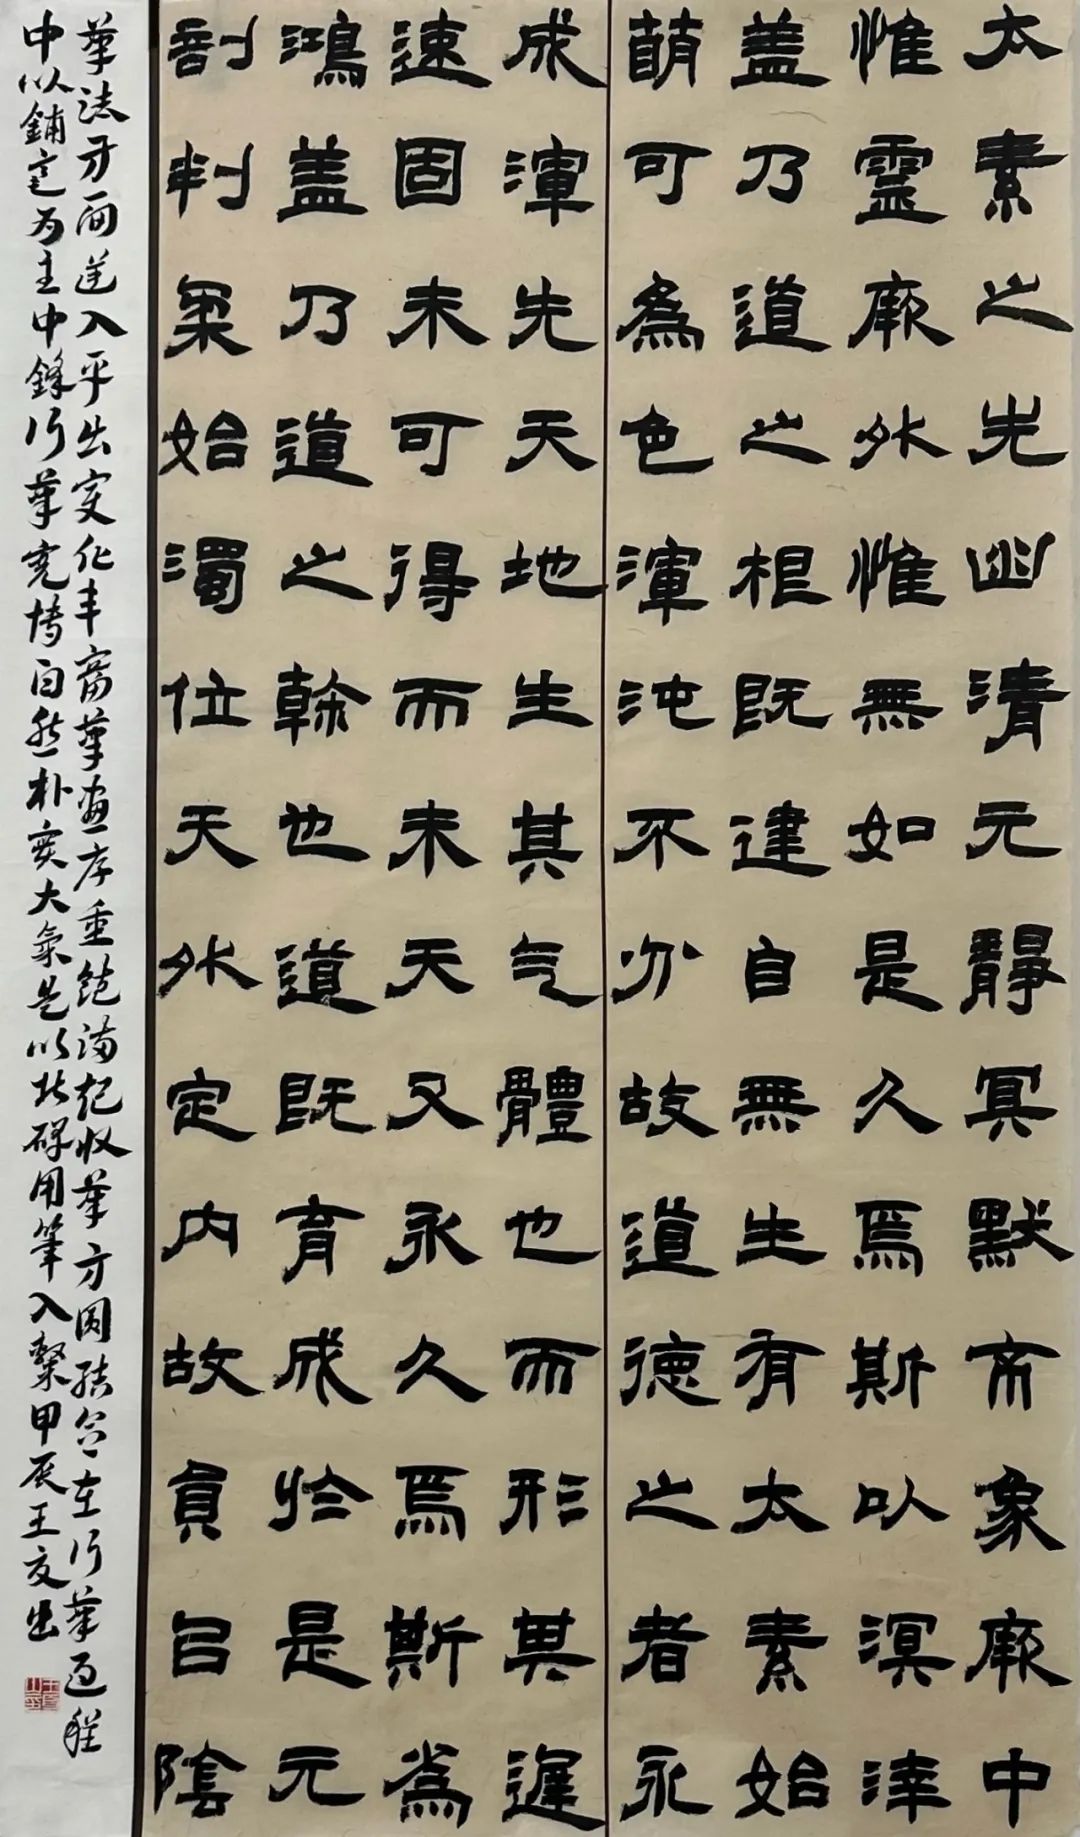 太素之先幽清元靜冥默象厥中
惟靈厥外惟無如是久焉斯以溟涬
盖乃道之根既建自無生有太素始
萌可為色渾沌不分故道德之者永
成渾先天地生其气體也而形其遲
速固未可得而未天又永久焉斯為
鴻盖乃道之幹也道既育成於是元
剖判柔始濁位天外定内故員㠯陰
筆法方面逆入平出变化丰富筆画厚重饱满起收筆方圆结合在行筆过程
中以鋪毫为主中鋒行筆宽博自然朴实大氣是以北碑用筆入隸甲辰王友